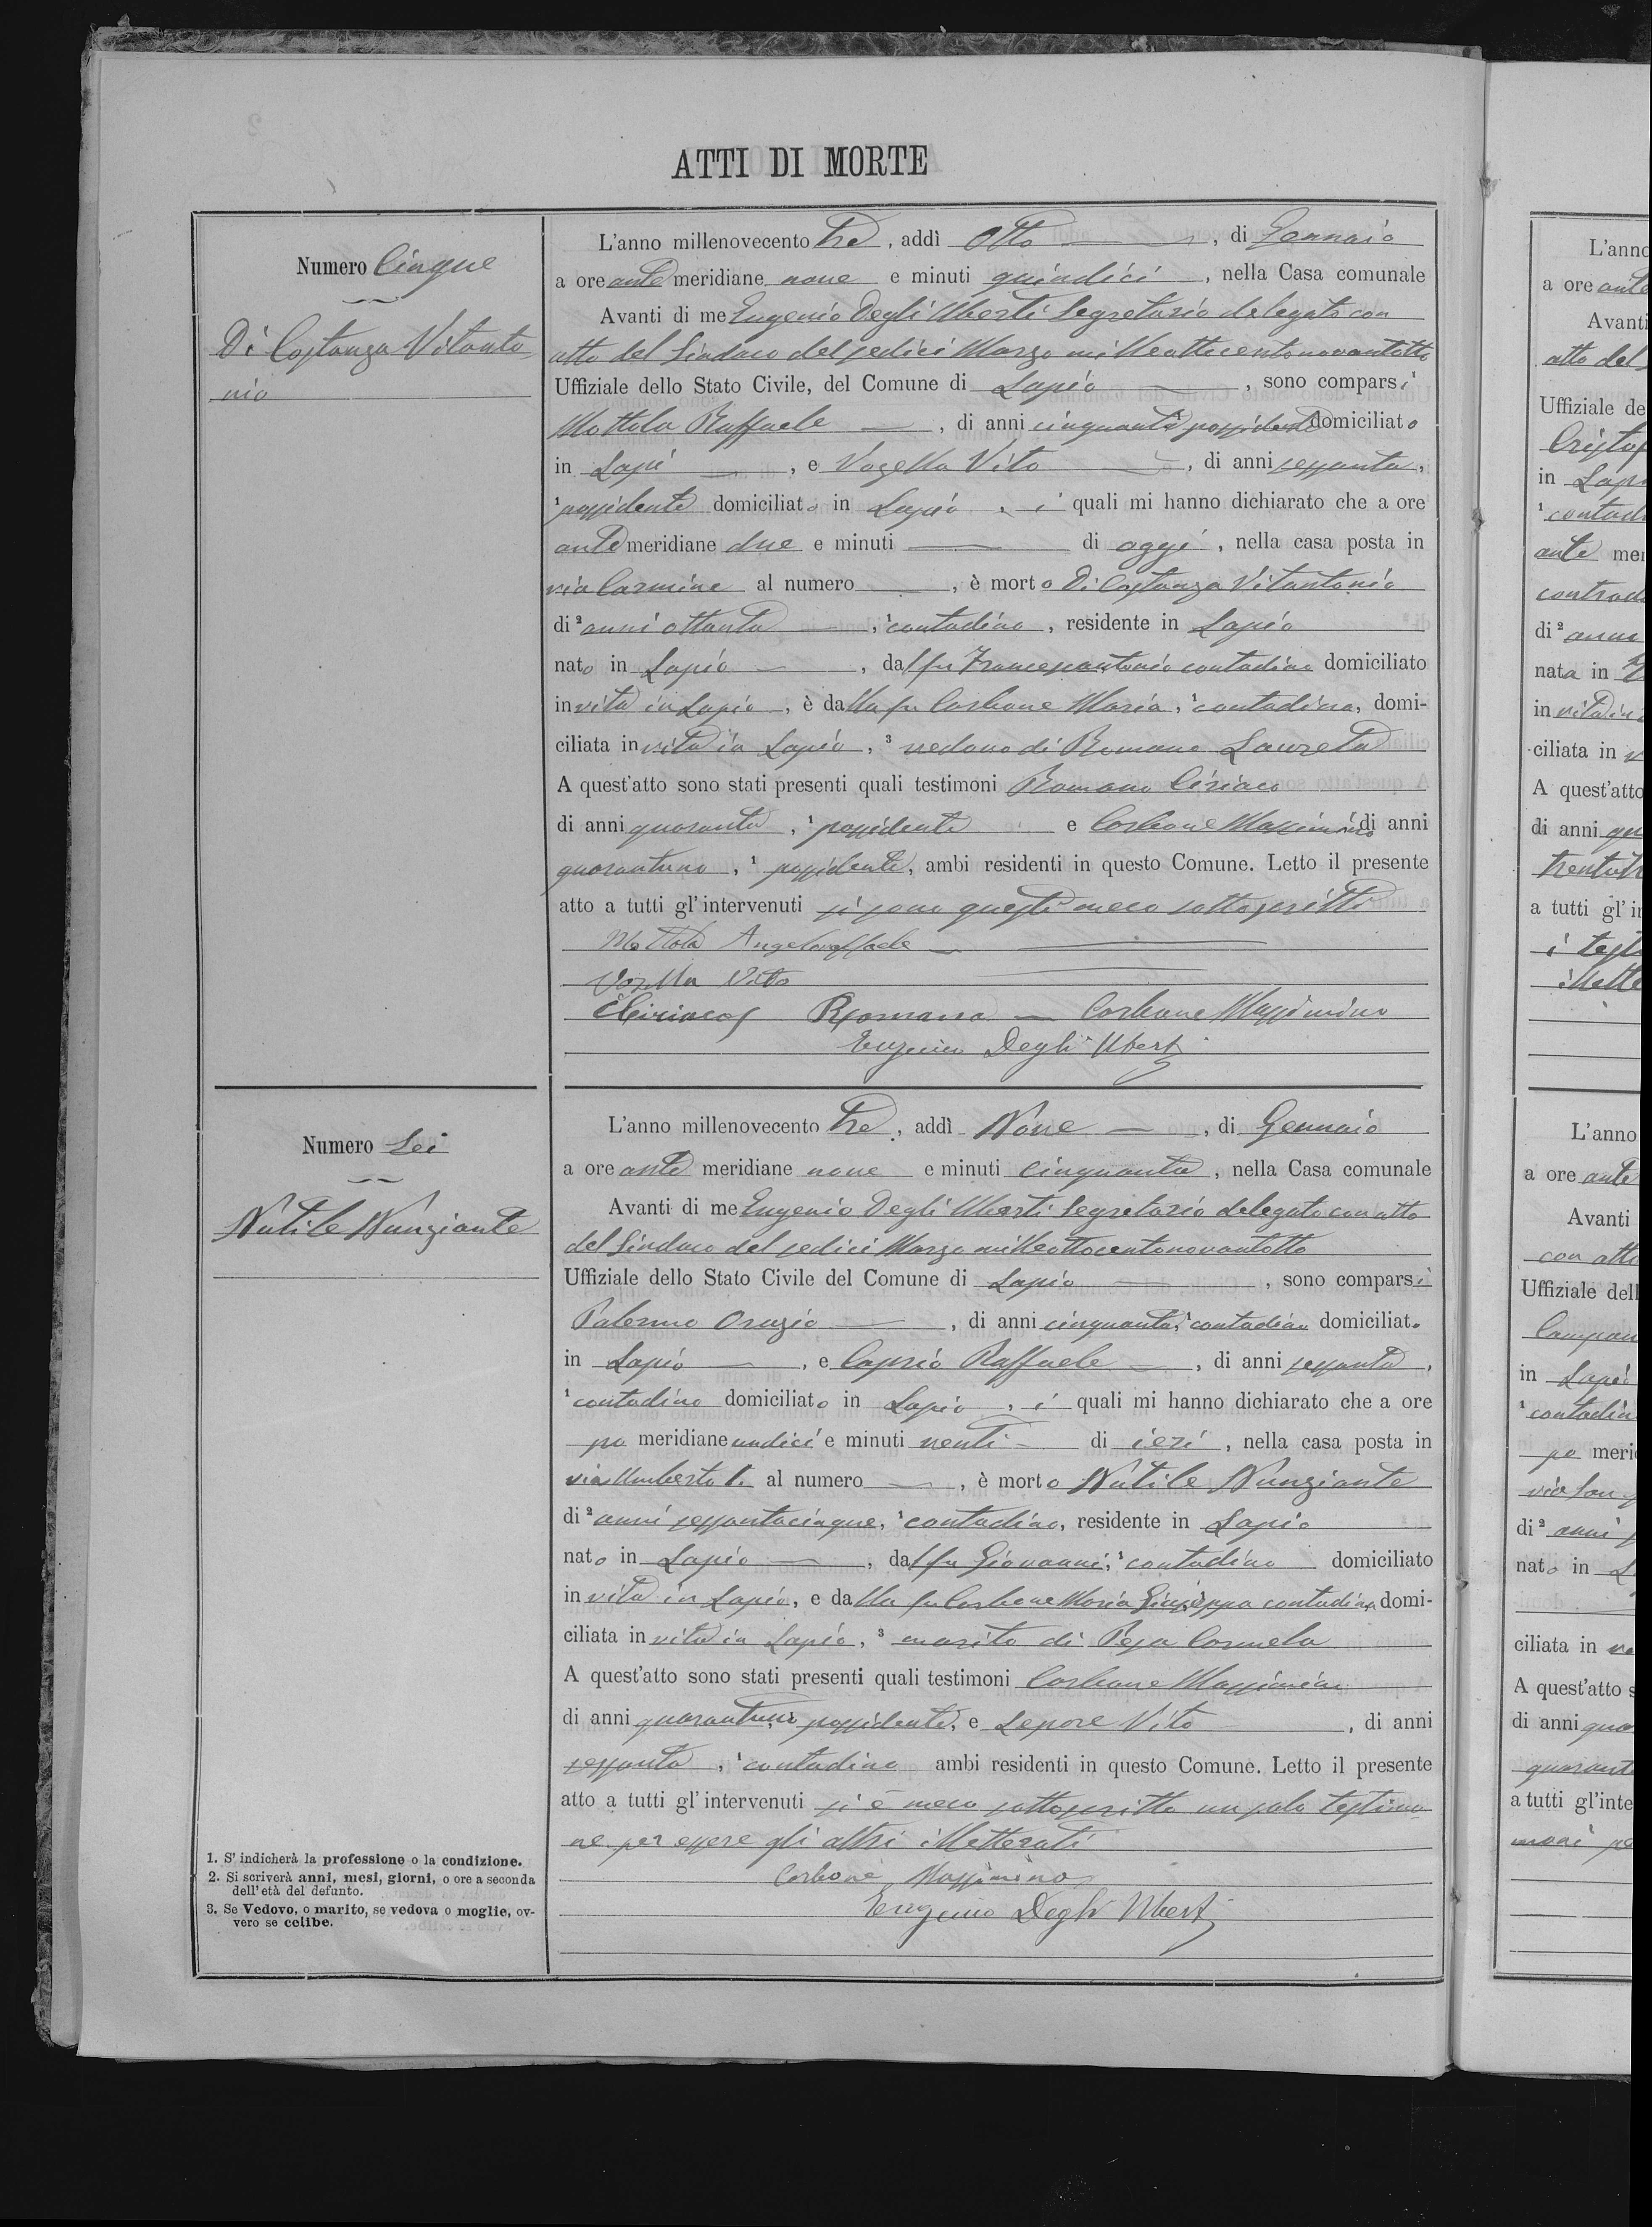 ATTI DI MORTE
Numero Cinque
Di Costanza Vitanto
nio
L'anno millenovecento tre, addì Otto, di Gennaio
a ore ante meridiane nove e minuti quindici, nella Casa comunale
Avanti di me Eugenio Degli Uberti Segretario delegato con
atto del Sindaco del sedici Marzo milleottocentonovantotto
Uffiziale dello Stato Civile, del Comune di Lapio, sono comparsi
Mottola Raffaele, di anni cinquanta, ¹ possidente domiciliato
in Lapi, e Vozella Vito, di anni sessanta,
¹ possidente domiciliato in Lapio, i quali mi hanno dichiarato che a ore
ante meridiane due e minuti di oggi, nella casa posta in
via Carmine al numero, è morto Di Costanza Vitantonio
di ² anni ottanta, ¹ contadino, residente in Lapio
nato in Lapio, dal fu Francescantonio contadino domiciliato
in vita in Lapio, è dalla fu Carbone Maria, ¹ contadina, domi-
ciliata in vita in Lapio, ³ vedovo di Romano Laureta
A quest'atto sono stati presenti quali testimoni Romano Ciriaco
di anni quaranta, ¹ possidente e Carbone Massimino di anni
quarantuno, ¹ possidente, ambi residenti in questo Comune. Letto il presente
atto a tutti gl'intervenuti si sono questi meco sottoscritti
Mottola Angeloraffaele
Vozella Vito
Ciriaco Romano Carbone Massimino
Eugenio Degli Uberti
Numero Sei
Nutile Nunziante
L'anno millenovecento tre, addì Nove, di Gennaio
a ore ante meridiane nove e minuti cinquanta, nella Casa comunale
Avanti di me Eugenio Degli Uberti Segretario delegato con atto
del Sindaco del sedici Marzo milleottocentonovantotto
Uffiziale dello Stato Civile del Comune di Lapio, sono comparsi
Palermo Orazio, di anni cinquanta, ¹ contadino domiciliato
in Lapio, e Caprio Raffaele, di anni sessanta,
¹ contadino domiciliato in Lapio, i quali mi hanno dichiarato che a ore
po meridiane undici e minuti venti di ieri, nella casa posta in
via Umberto I. al numero, è morto Nutile Nunziante
di ² anni sessantacinque, ¹ contadino, residente in Lapio
nato in Lapio, dal fu Giovanni, ¹ contadino domiciliato
in vita in Lapio, e dalla fu Carbone Maria Giuseppa contadina domi-
ciliata in vita in Lapio, ³ marito di Pesa Carmela
A quest'atto sono stati presenti quali testimoni Carbone Massimino
di anni quarantuno possidente, e Lepore Vito, di anni
sessanta, ¹ contadino ambi residenti in questo Comune. Letto il presente
atto a tutti gl'intervenuti si è meco sottoscritto un solo testimo
ne per essere gli altri illetterati
Carbone Massimino
Eugenio Degli Uberti
1. S' indicherà la professione o la condizione.
2. Si scriverà anni, mesi, giorni, o ore a seconda
dell' età del defunto.
3. Se Vedovo, o marito, se vedova o moglie, ov-
vero se celibe.
L'anno
a ore ante
Avanti
atto del
Uffiziale de
in Lapi
¹ contad
ante mer
contrad
di ² anni
nata in
in vita in
ciliata in v
A quest'atto
di anni qu
a tutti gl' in
i test
illette
L'anno
a ore ante
Avanti
con atto
Uffiziale dell
in Lapio
¹ contadin
po meri
di ² anni
nato in L
ciliata in
A quest'atto s
di anni qua
quarant
a tutti gl'inte